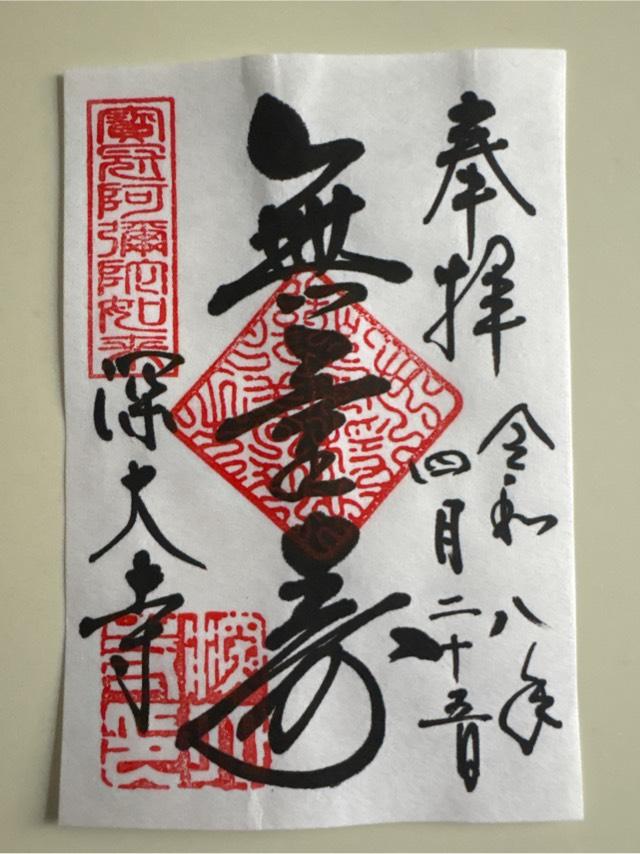 奉拝
令和八年
四月二十五日
無量寿
寶冠阿彌陀如来
深大寺